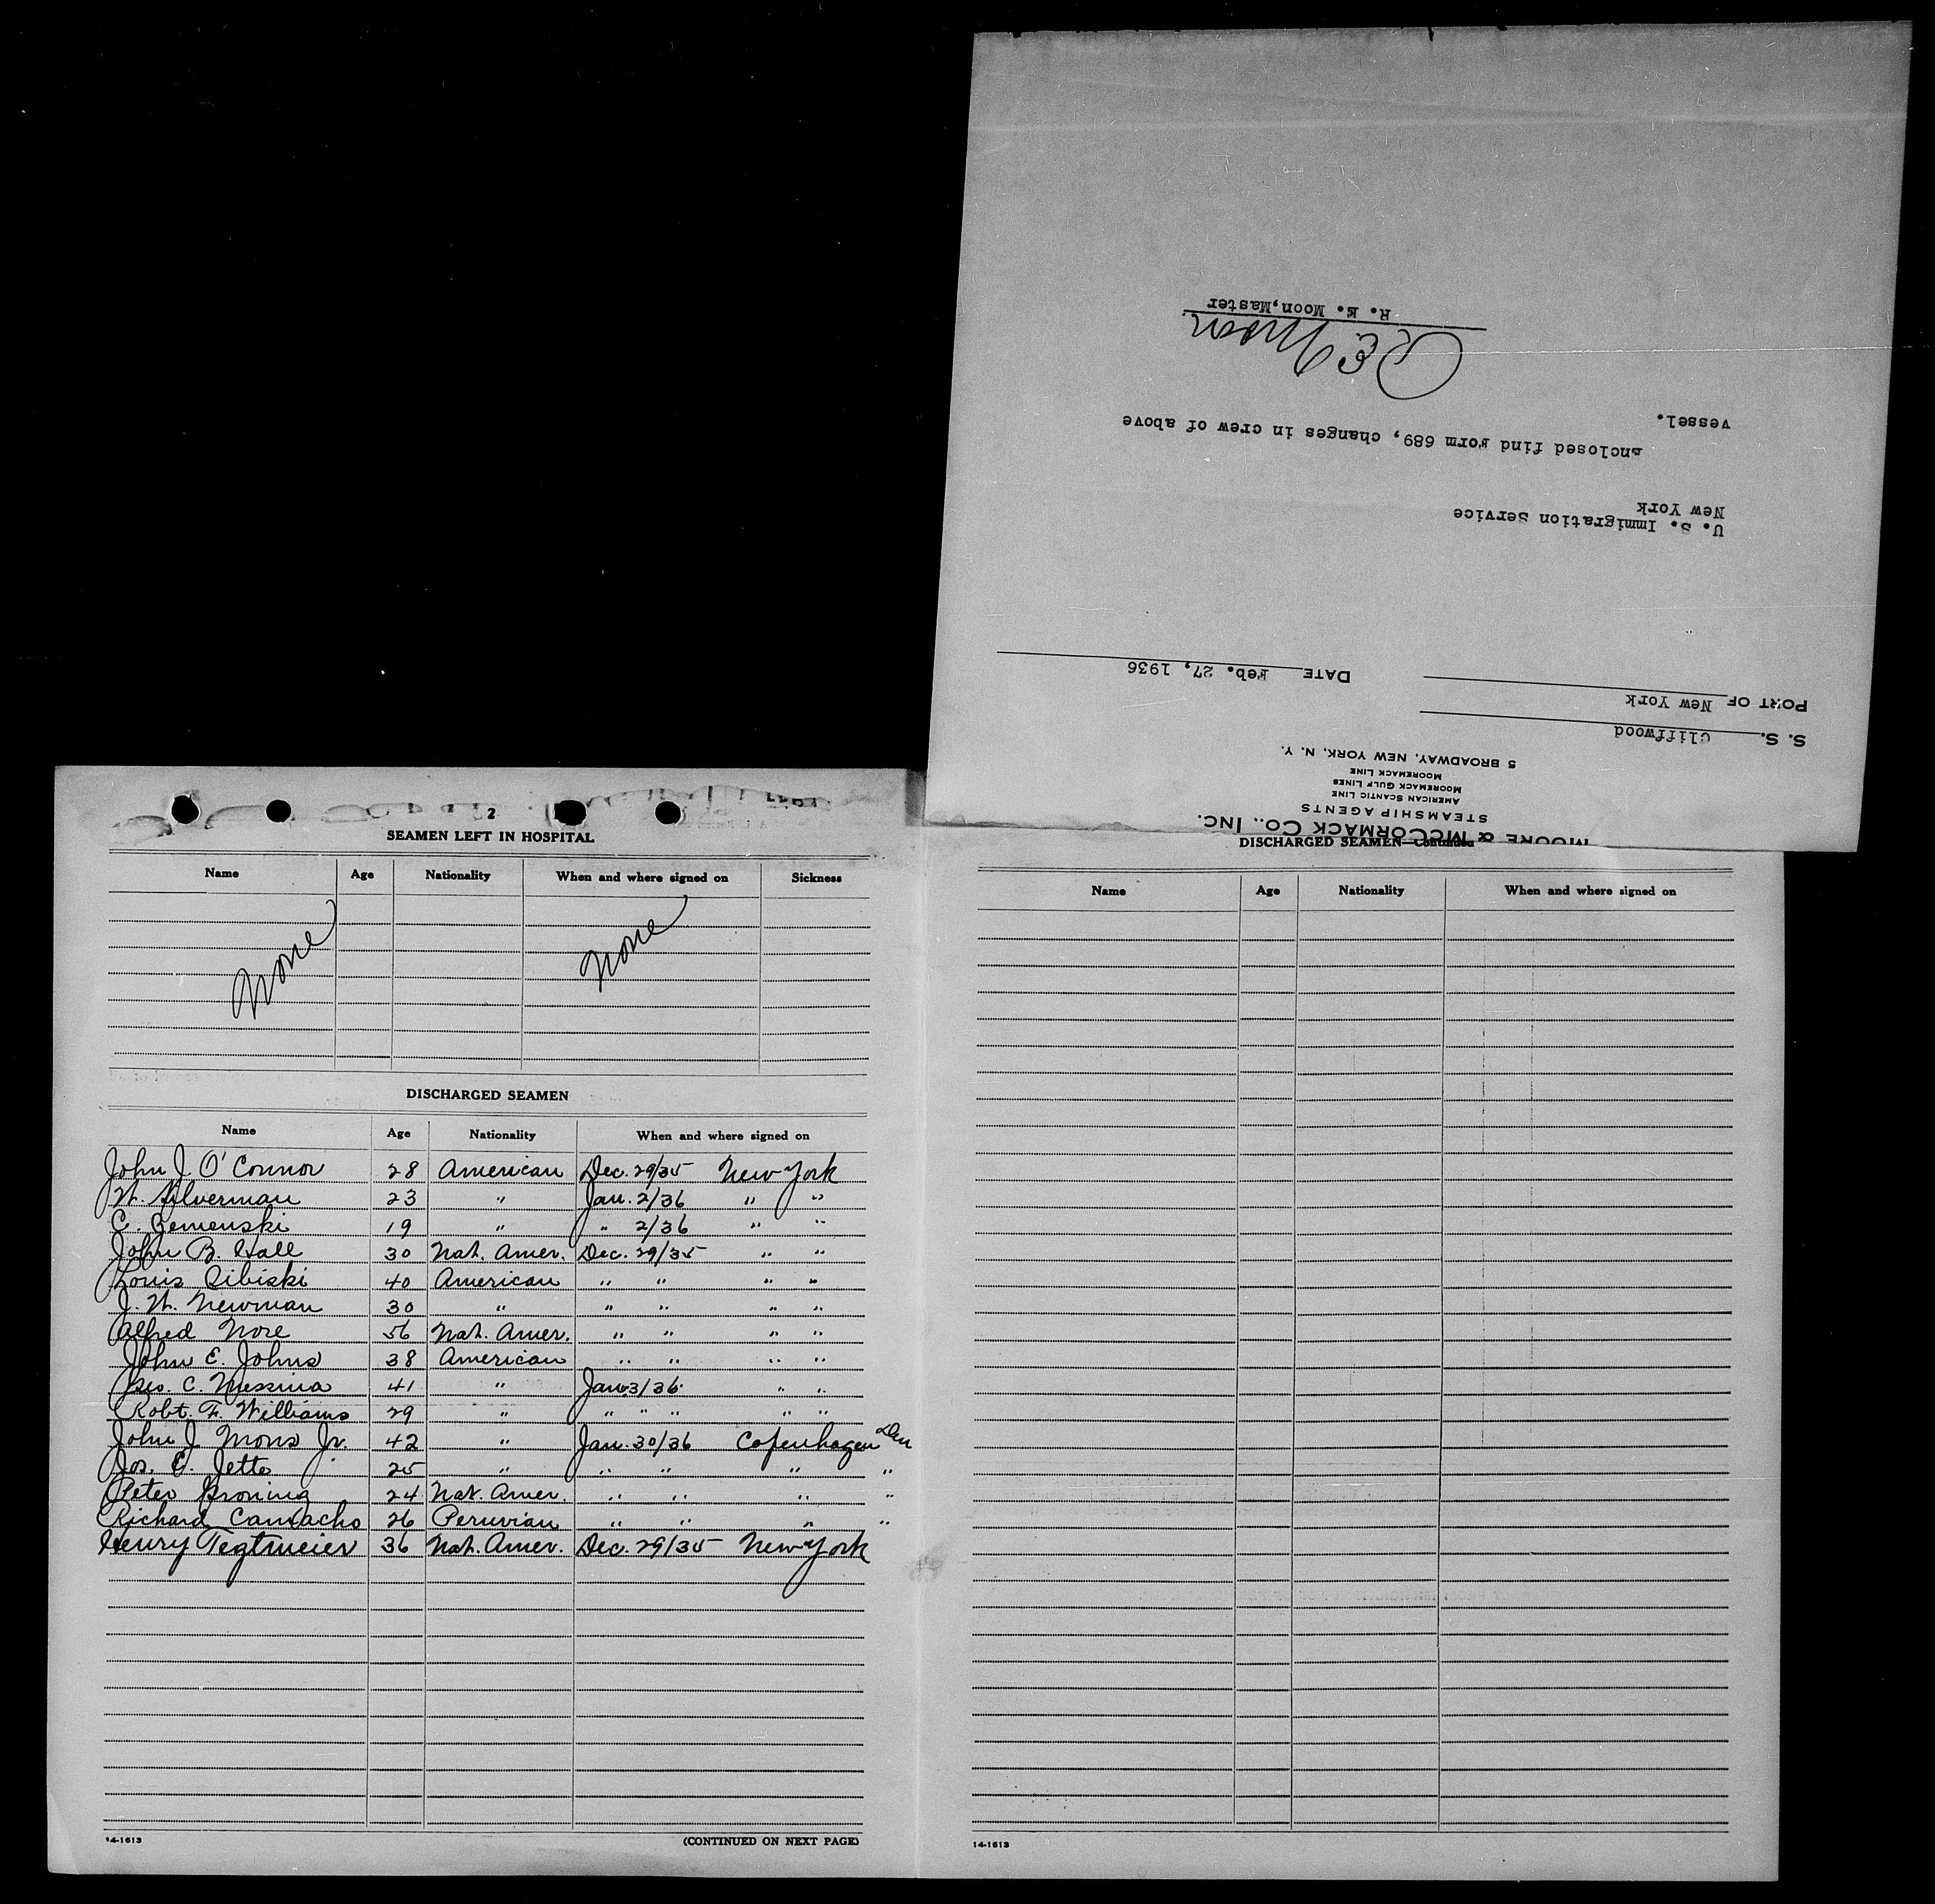 MOORE & McCORMACK CO., INC.
STEAMSHIP AGENTS
AMERICAN SCANTIC LINE
MOOREMACK GULF LINES
MOOREMACK LINE
5 BROADWAY, NEW YORK, N. Y.
S. S. Cliffwood
PORT OF New York DATE Feb. 27, 1936
U. S. Immigration Service
New York
Enclosed find Form 689, changes in crew of above
vessel.
R E Moon
R. E. Moon, Master
2
SEAMEN LEFT IN HOSPITAL
Name Age Nationality When and where signed on Sickness
None None
DISCHARGED SEAMEN
Name Age Nationality When and where signed on
John J. O'Connor 28 American Dec. 29/35 New York
H. Silverman 23 " Jan. 2/36 " "
C. Zemenski 19 " " 2/36 " "
John B. Hall 30 Nat. Amer. Dec. 29/35 " "
Louis Cibiski 40 American " " " "
J. H. Newman 30 " " " " "
Alfred Nore 56 Nat. Amer. " " " "
John E. Johns 38 American " " " "
Geo. C. Messina 41 " Jan. 3/36 " "
Robt. F. Williams 29 " " " " " "
John J. Mons Jr. 42 " Jan. 30/36 Copenhagen Den
Jos. E. Jette 25 " " " " "
Peter Broning 24 Nat. Amer. " " " "
Richard Camacho 26 Peruvian " " " "
Henry Tegtmeier 36 Nat. Amer. Dec. 29/35 New York
14-1613 (CONTINUED ON NEXT PAGE)
DISCHARGED SEAMEN—Continued
Name Age Nationality When and where signed on
14-1613